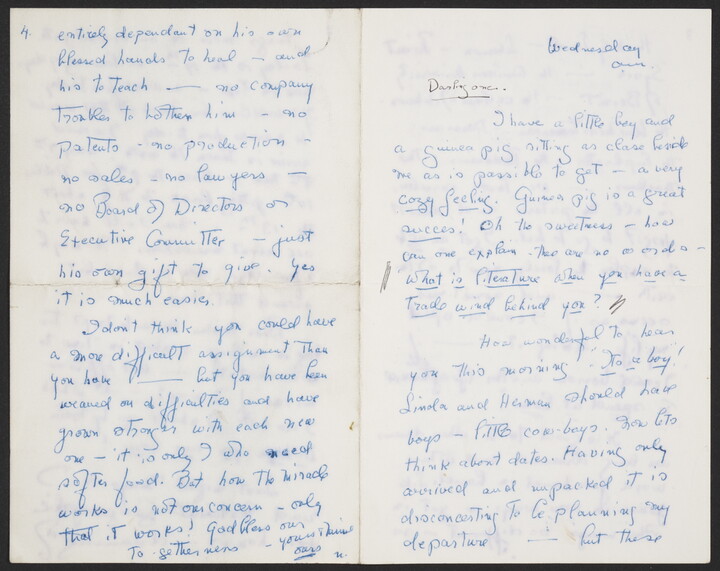 4. entirely dependant on his own
blessed hands to heal – and
his to teach — no company
troubles to bother him – no
patents – no production –
no sales – no lawyers –
no Board of Directors or
Executive Committee – just
his own gift to give. Yes
it is much easier.
I don't think you could have
a more difficult assignment than
you have! — but you have been
weaned on difficulties and have
grown stronger with each new
one – it is only I who need
softer food. But how the miracle
works is not our concern – only
that it works! God bless our
togetherness – yours & mine
ours n.
Wednesday
am.
Darling one..
I have a little boy and
a guinea pig sitting as close beside
me as is possible to get – a very
cozy feeling. Guinea pig is a great
succes! Oh the sweetness – how
can one explain – there are no words –
"What is literature when you have a
Trade wind behind you?"
How wonderful to hear
you this morning "Its a boy"!
Linda and Herman should have
boys – little cow-boys. Now lets
think about dates. Having only
arrived and unpacked it is
disconcerting to be planning my
departure — but these